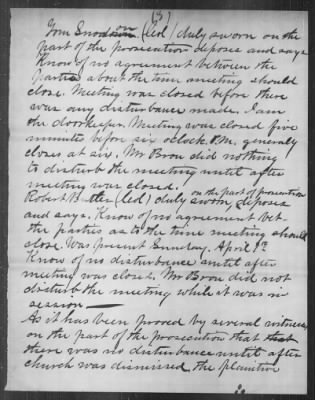 (8)
Tom Snodson (Col) duly sworn on the
part of the prosecution deposes and says
Know of no agreement between the
parties about the time meeting should
close. Meeting was closed before there
was any disturbance made. I am
the doorkeeper. Meeting was closed five
minutes before six oclock P.M. generly
closes at six. Mr Bron did nothing
to disturb the meeting until after
meeting was closed.
on the part of prosecution
Robert (Col) duly sworn, deposes
and says. Know of no agreement bet-
the parties as to the time meeting should
close. Was present Sunday. April
Know of no disturbance until after
meeting was closed. Mr Bron did not
disturb the meeting while it was in
session
As it has been prooved by several witnesses
on the part of the prosecution that that
there was no disturbance until after
church was dismissed, the plaintive